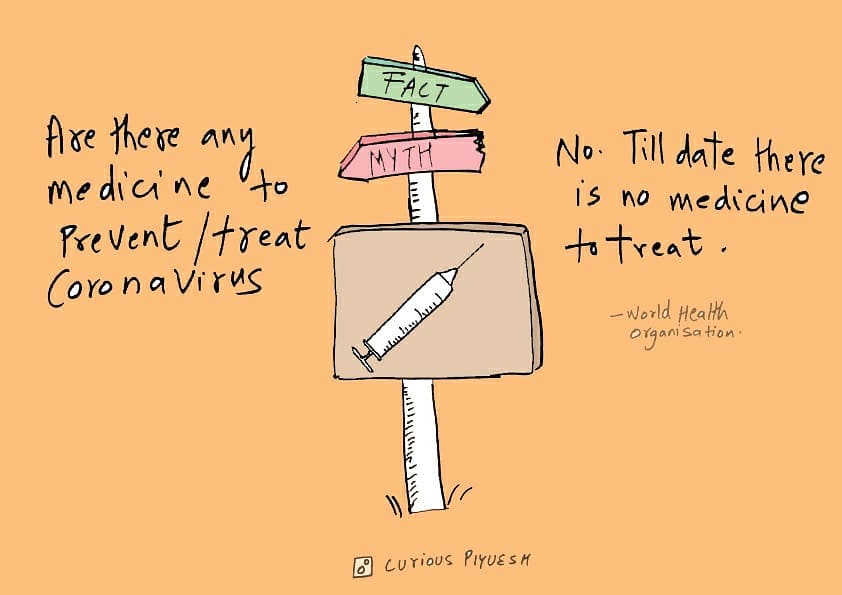 FACT
MYTH
Are there any
medicine to
Prevent/treat
CoronaVirus
No. Till date there
is no medicine
to treat.
-World Health
Organisation.
curious PIYUESH